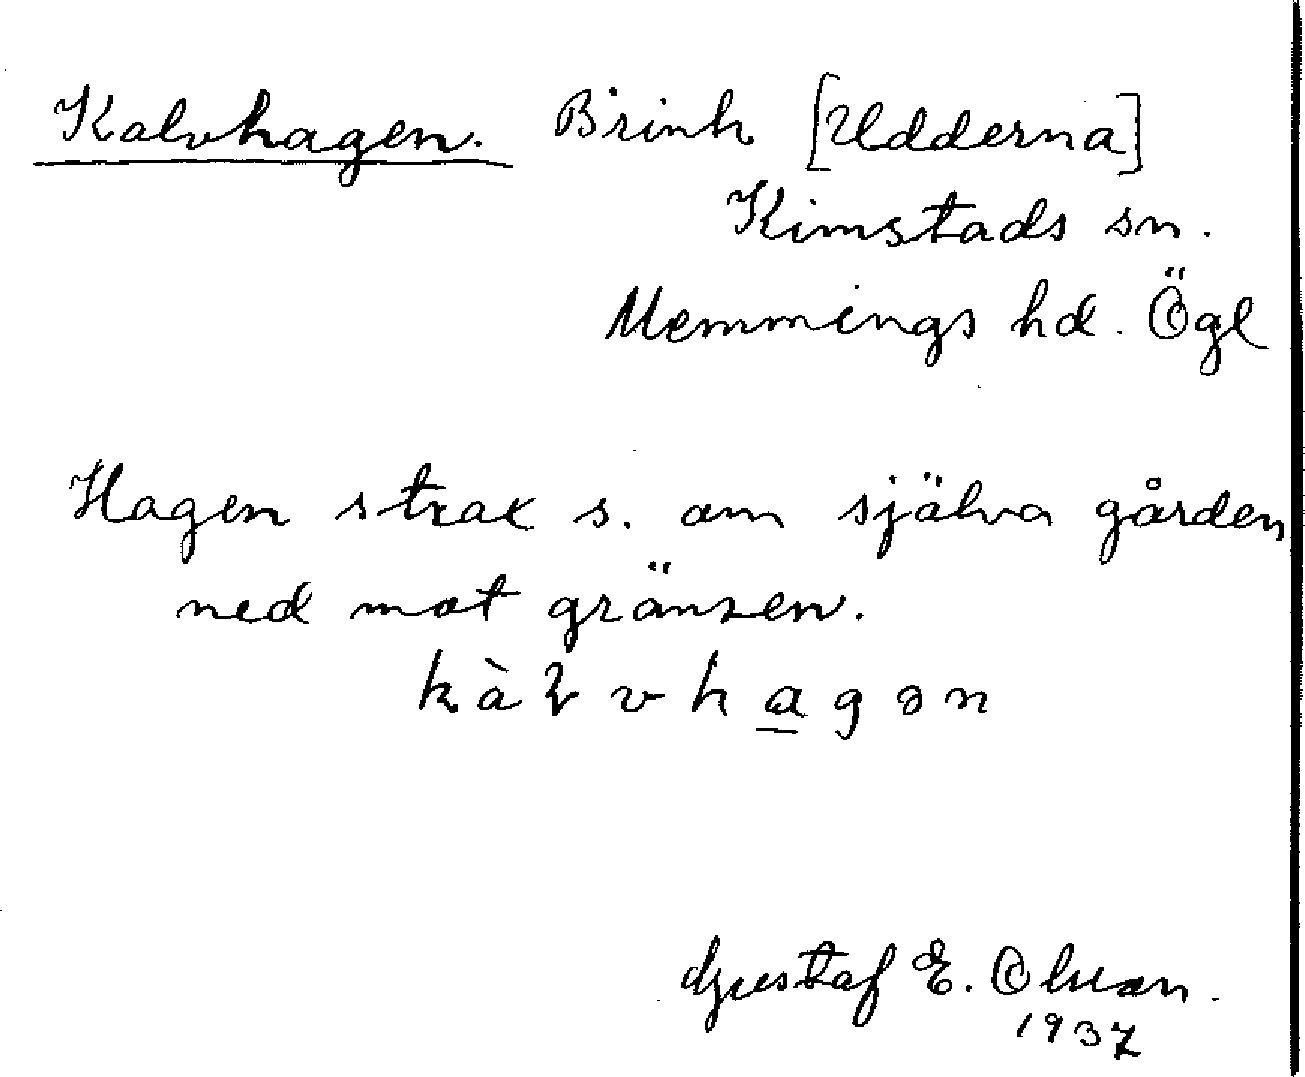 Kalvhagen. Brink [Udderna]
Kimstads sn.
Memmings hd. Ögl
Hagen strax s. om själva gården
ned mot gränsen.
kàɫvhagən
Gustaf E. Olson.
1937